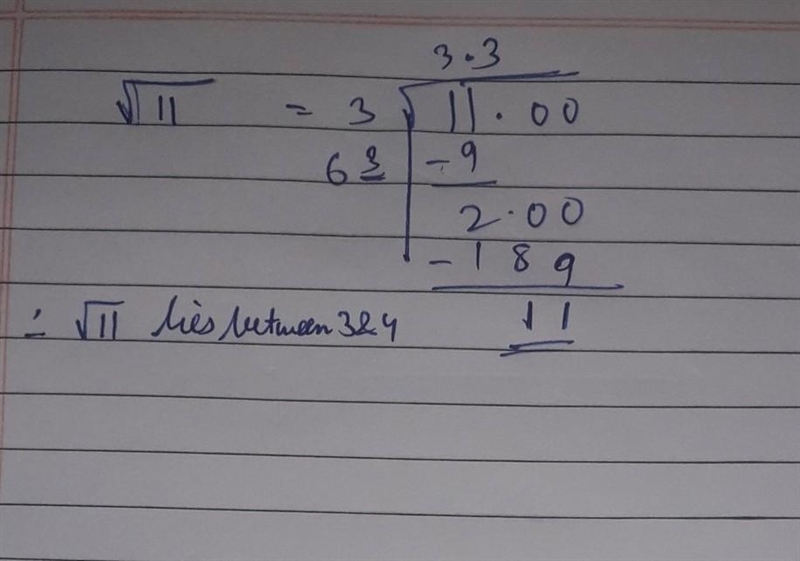 3.3
√11 = 3 √11.00
63 -9
2.00
-189
∴ √11 lies between 3&4 11